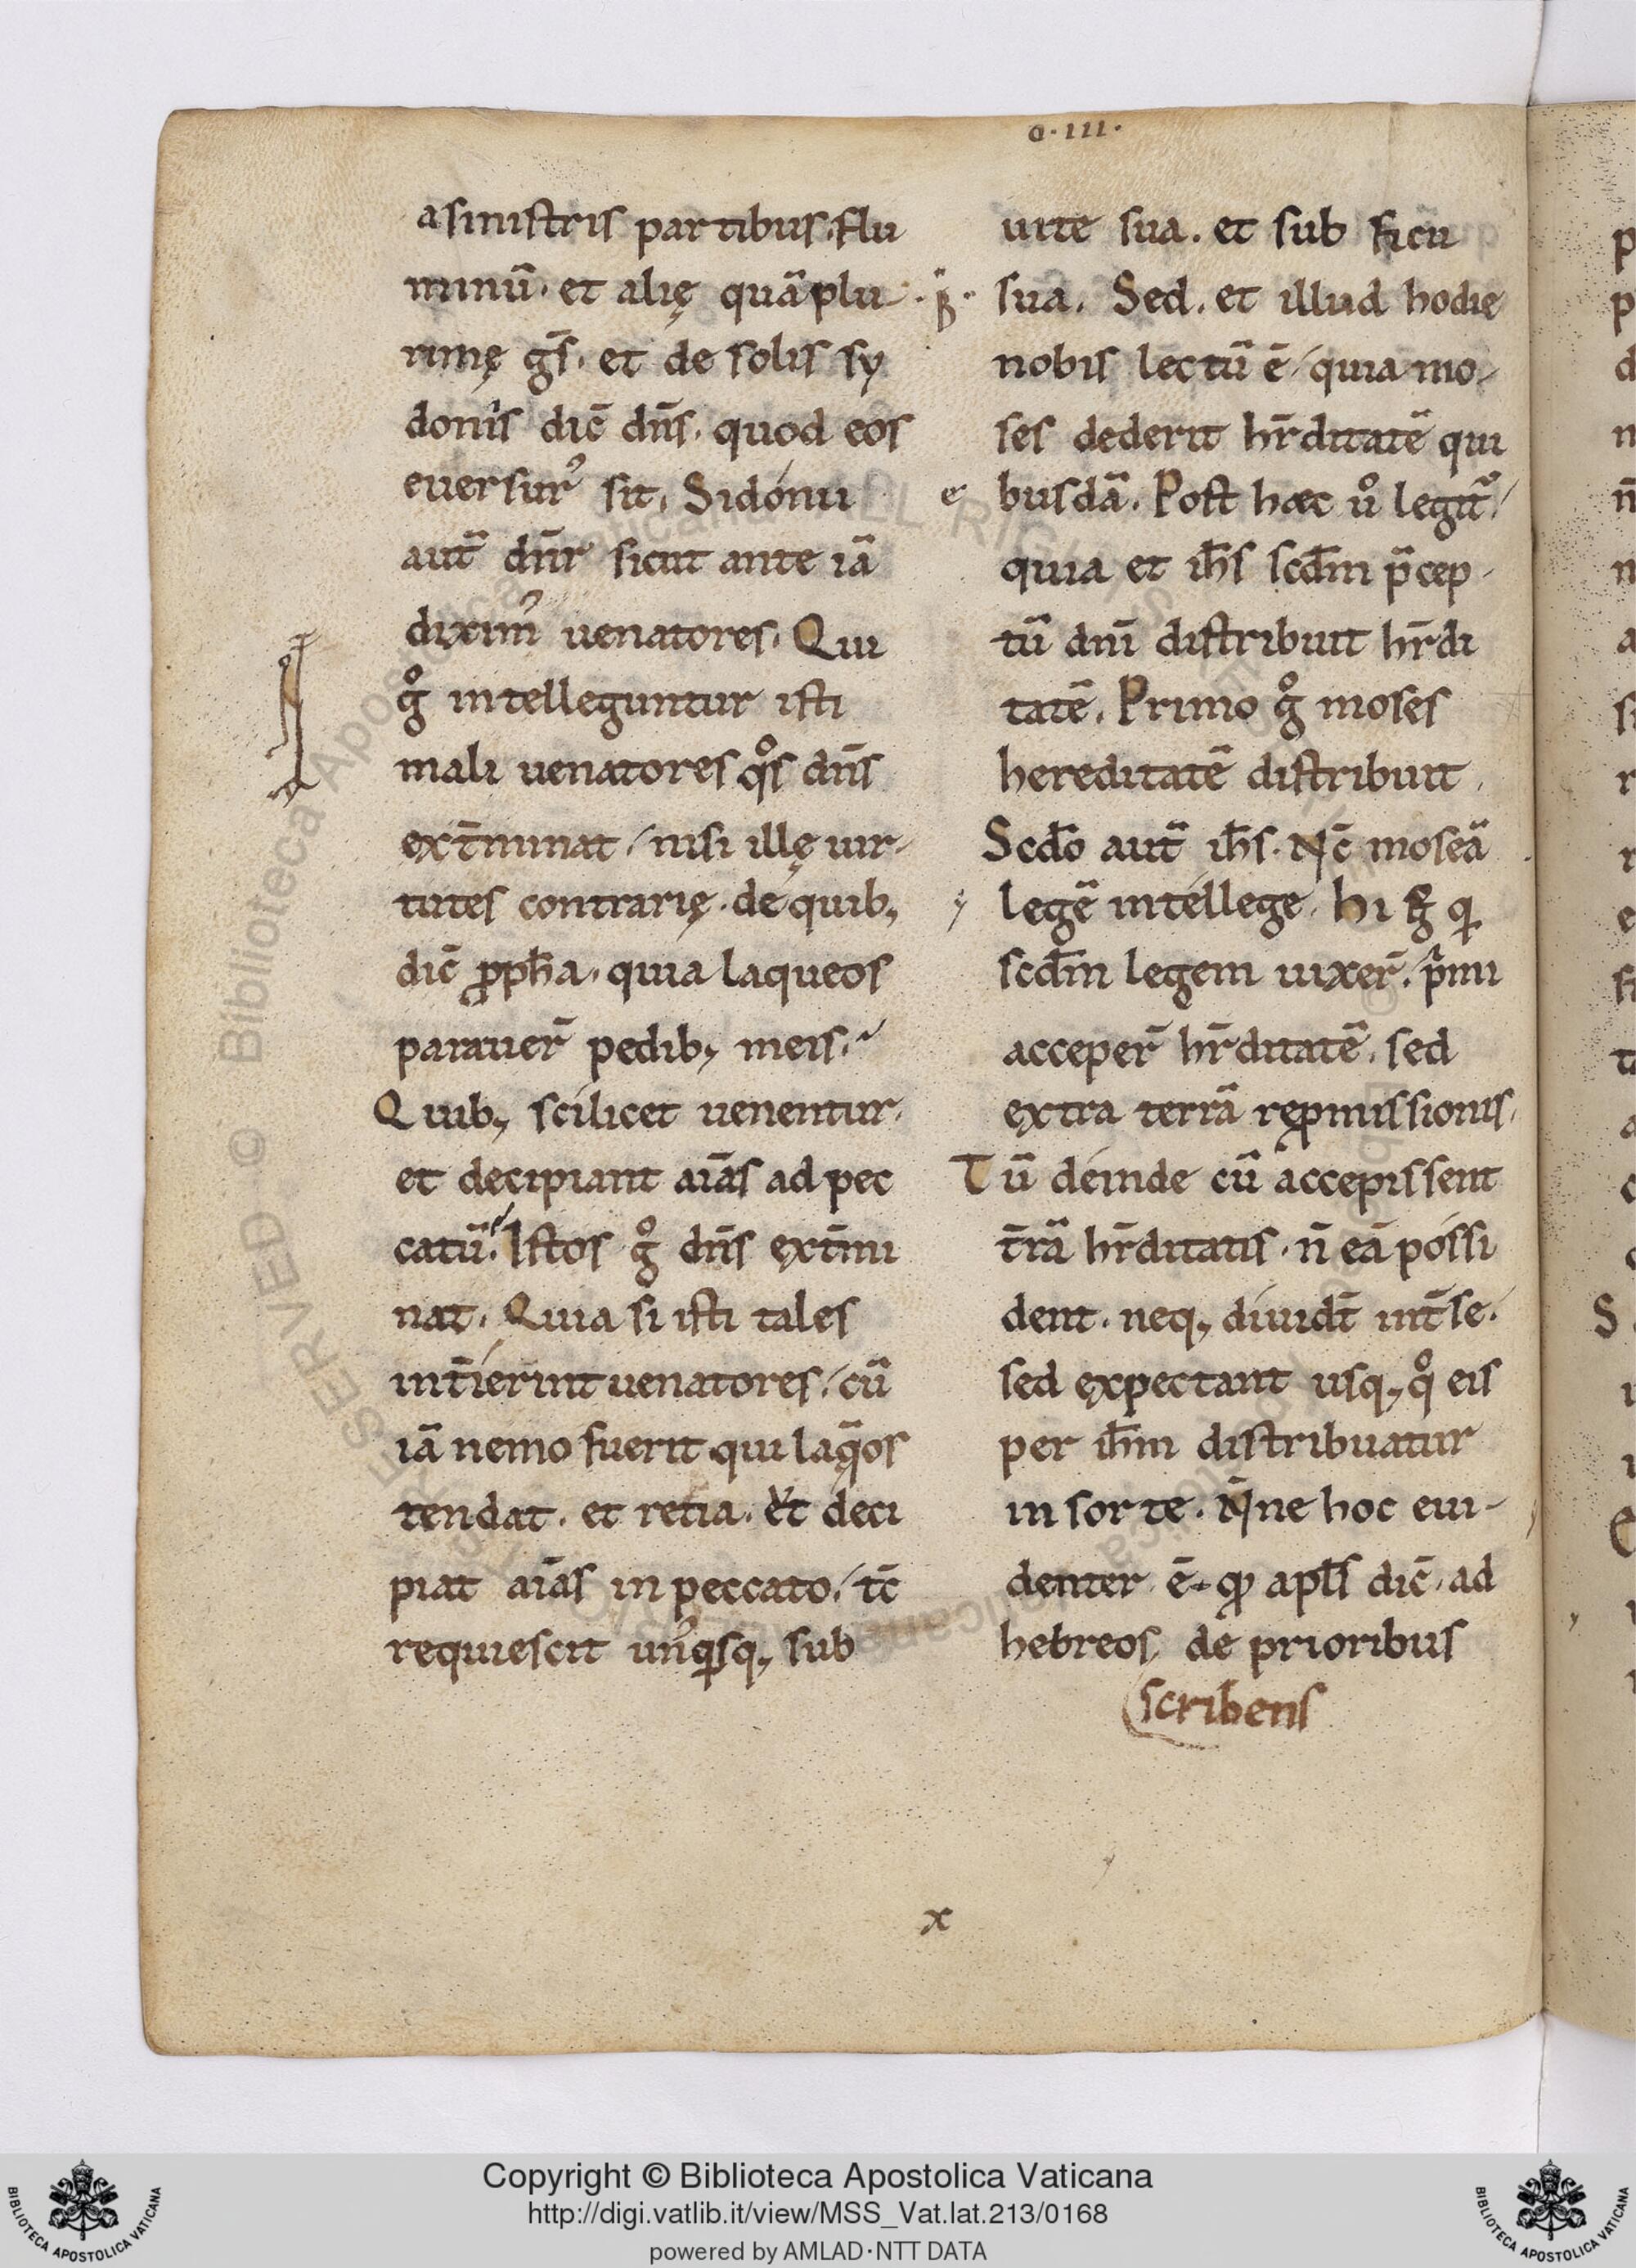 a·III·
asinistris partibus. flu
minū. et alię quāplu
rimę gs̄. et de solis sy
doniis dic̄ dn̄s. quod eos
euersur᾽ sit. Sidonii
aut̄ dn̄r sicut ante iā
dixim᾽ uenatores. Qui
g̊ intelleguntur isti
mali uenatores qͦs dn̄s
ext̄minat / nisi illę uir-
tutes contrarię. de quib;
dic̄ ꝓph̄a. quia laqueos
parauer̄ pedib; meis.
Quib; scilicet uenentur.
et decipiant aīas ad pec
catū. Istos g̊ dn̄s ext̄mi
nat. Quia si isti tales
int̄ierint uenatores / cū
iā nemo fuerit qui laqͣos
tendat. et retia. et deci
piat aīas in peccato / tc̄
requiescit un᾽qͥsq; sub
uite sua. et sub ficu
sua. Sed. et illud hodie
nobis lectū ē / quia mo-
ses dederit hr̄ditatē qui
busdā. Post hæc uͦ legit᷑ /
quia et ih̄s scd̄m p̄cep-
tū dn̄i distribuit hr̄di
tatē. Primo g̊ moses
hereditatē distribuit.
Scdo aut̄ ih̄s. Nc̄ moseā
legē intellege. hi g̊ qͥ
scd̄m legem uixer̄. pͥmi
acceper̄ hr̄ditatē. sed
extra terrā reꝓmissionis.
Tū deinde cū accepissent
t̄rā hr̄ditatis. n̄ eā possi
dent. neq; diuidt̄ int̄ se.
sed expectant usq; qͦ eis
per ih̄m distribuatur
in sorte. N̄ne hoc eui-
denter ē. qͩ apl̄s dic̄. ad
hebreos, de prioribus
scribens
x
Copyright © Biblioteca Apostolica Vaticana
http://digi.vatlib.it/view/MSS_Vat.lat.213/0168
powered by AMLAD·NTT DATA
BIBLIOTECA APOSTOLICA VATICANA
BIBLIOTECA APOSTOLICA VATICANA